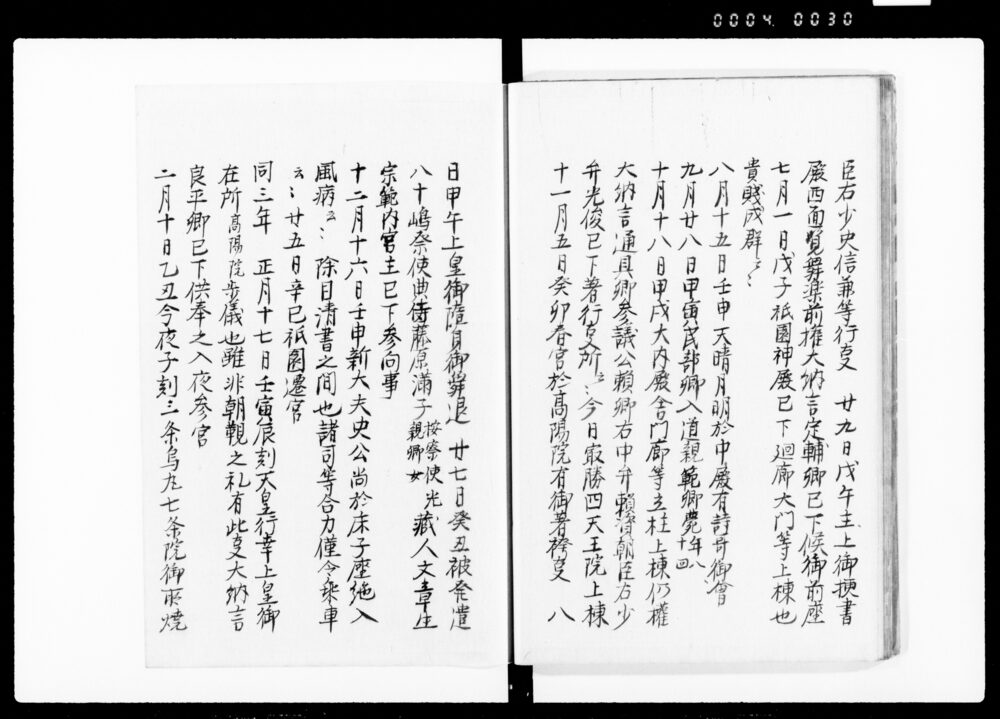 0004 0030
臣右少史信兼等行㕝 廿九日戊午主上御頓書
殿西面覧舞楽前権大納言定輔卿已下候御前座
七月一日戊子祇園神殿已下廻廊大门等上棟也
貴賤成群云々
八月十五日壬申天晴月明於中殿有詩哥御會
九月廿八日甲寅民部卿入道親範卿薨年八十四
十月十八日甲戌大内殿舎門廊等立柱上棟仍權
大納言通具卿参議公頼卿右中弁頼資朝臣右少
弁光俊已下著行㕝所云々今日最勝四天王院上棟
十一月五日癸卯春宮於高陽院有御著袴㕝 八
日甲午上皇御隨身御辞退 廿七日癸丑被発遣
八十嶋祭使典侍藤原滿子按察使光親卿女 藏人文章生
宗範内宮主已下参向事
十二月十六日壬申新大夫史公尚於床子座絶入
風病云々除目清書之間也諸司等合力僅令乗車
云々廿五日辛巳祇園遷宮
同三年 正月十七日壬寅辰刻天皇行幸上皇御
在所高陽院歩儀也雖非朝覲之礼有此㕝大納言
良平卿已下供奉之入夜参宮
二月十日乙丑今夜子刻三条烏丸七条院御所焼